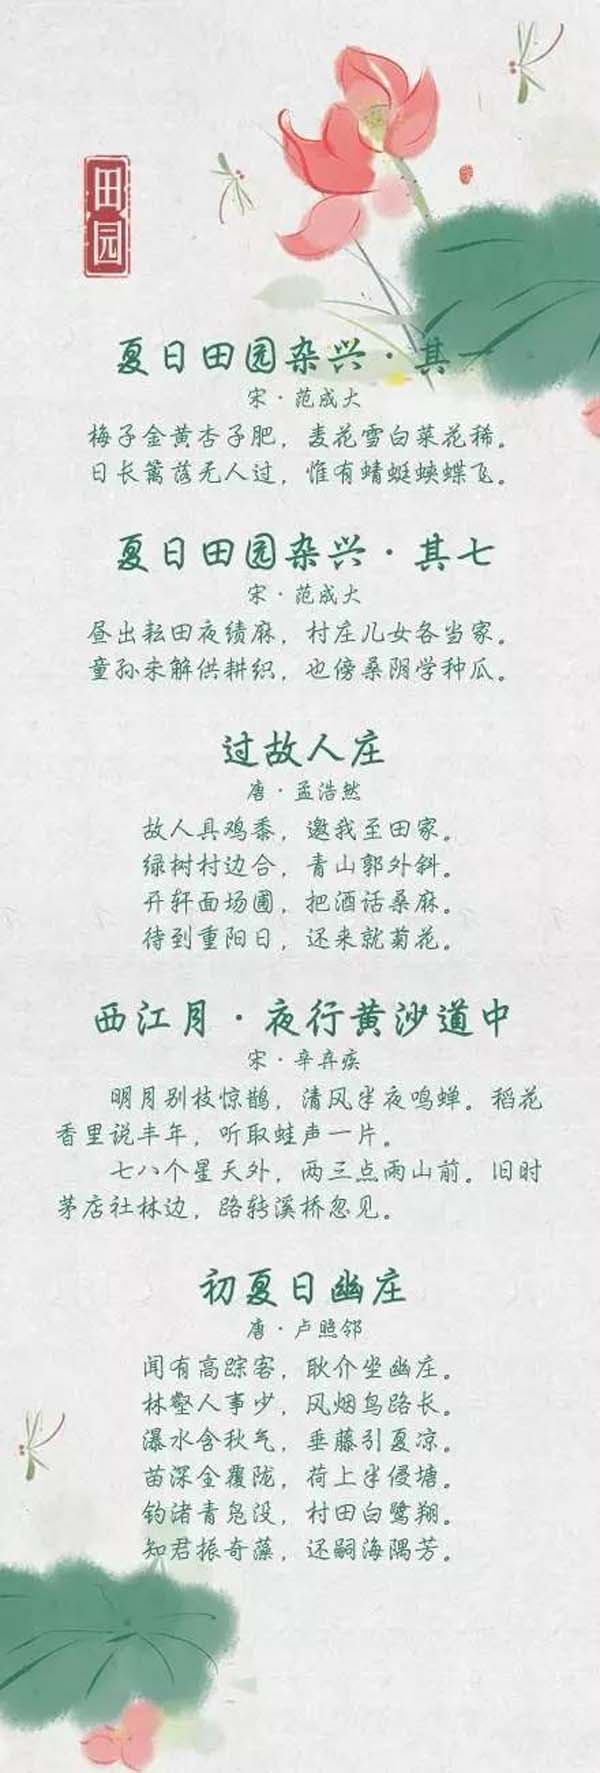 田园
夏日田园杂兴·其一
宋·范成大
梅子金黄杏子肥，麦花雪白菜花稀。
日长篱落无人过，惟有蜻蜓蛱蝶飞。
夏日田园杂兴·其七
宋·范成大
昼出耘田夜绩麻，村庄儿女各当家。
童孙未解供耕织，也傍桑阴学种瓜。
过故人庄
唐·孟浩然
故人具鸡黍，邀我至田家。
绿树村边合，青山郭外斜。
开轩面场圃，把酒话桑麻。
待到重阳日，还来就菊花。
西江月·夜行黄沙道中
宋·辛弃疾
明月别枝惊鹊，清风半夜鸣蝉。稻花
香里说丰年，听取蛙声一片。
七八个星天外，两三点雨山前。旧时
茅店社林边，路转溪桥忽见。
初夏日幽庄
唐·卢照邻
闻有高踪客，耿介坐幽庄。
林壑人事少，风烟鸟路长。
瀑水含秋气，垂藤引夏凉。
苗深全覆陇，荷上半侵塘。
钓渚青凫没，村田白鹭翔。
知君振奇藻，还嗣海隅芳。